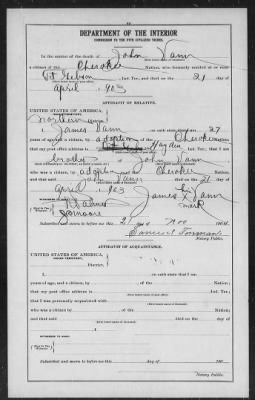 DEPARTMENT OF THE INTERIOR
COMMISSION TO THE FIVE CIVILIZED TRIBES.
In the matter of the death of John Vann
a citizen of the Cherokee Nation, who formerly resided at or near
Ft Gibson, Ind. Ter., and died on the 21 day of
April, 1903
AFFIDAVIT OF RELATIVE.
UNITED STATES OF AMERICA,
INDIAN TERRITORY,
Northern District.
I, James Vann, on oath state that I am 27
years of age and a citizen, by adoption, of the Cherokee Nation;
that my post office address is Hayden, Ind. Ter.; that I am
brother of John Vann
who was a citizen, by adoption, of the Cherokee Nation;
and that said John Vann died on the 21 day of
April, 1903
James Vann
mark
WITNESSES TO MARK:
Subscribed and sworn to before me this 21 day of Nov 190
Notary Public.
AFFIDAVIT OF ACQUAINTANCE.
UNITED STATES OF AMERICA,
INDIAN TERRITORY,
District.
I, on oath state that I am
years of age, and a citizen, by of the Nation;
that my post office address is Ind. Ter.;
that I was personally acquainted with
who was a citizen, by of the Nation;
and that said died on the day of
WITNESSES TO MARK:
Subscribed and sworn to before me this day of 190
Notary Public.